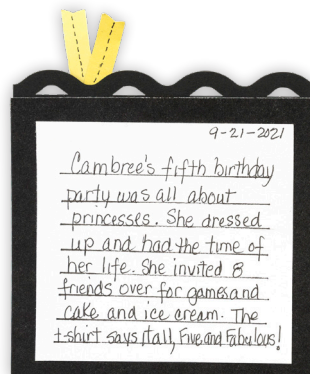 9-21-2021
Cambree's fifth birthday
party was all about
princesses. She dressed
up and had the time of
her life. She invited 8
friends over for games and
cake and ice cream. The
t-shirt says it all, Five and Fabulous!